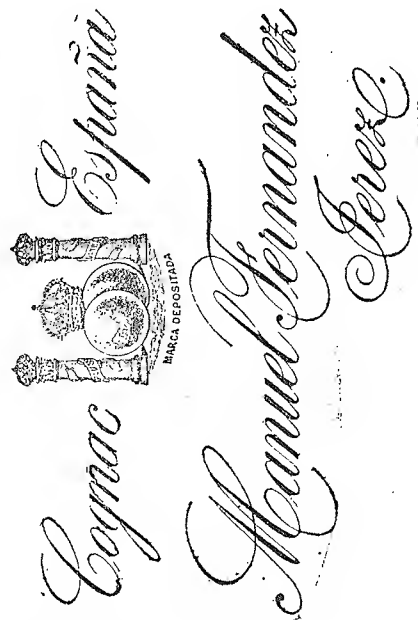 Cognac España
MARCA DEPOSITADA
Manuel Fernandez
Jerez.